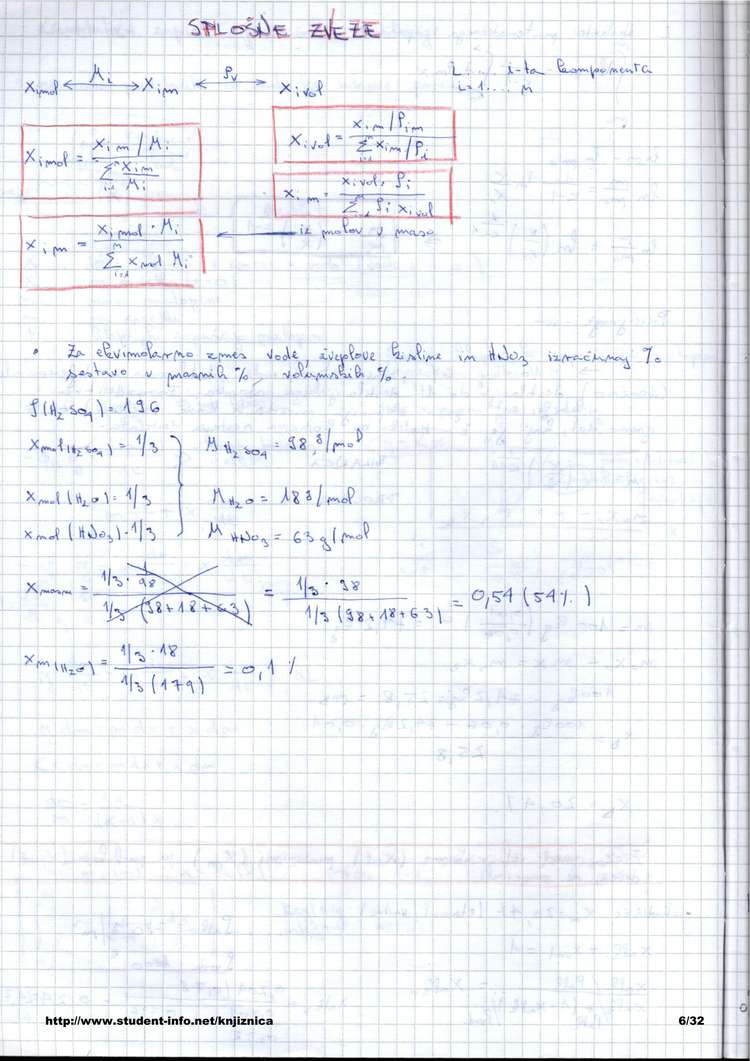 SPLOŠNE ZVEZE
x_imol <—M_i—> x_im <—ρ_v—> x_ivol
i.... i-ta komponenta
i=1.... n
x_imol = (x_im / M_i) / (∑_{i=1}^{n} x_im / M_i)
x_ivol = (x_im / ρ_im) / (∑_{i=1}^{n} x_im / ρ_i)
x_im = (x_ivol · ρ_i) / (∑ ρ_i x_ivol)
x_im = (x_imol · M_i) / (∑_{i=1}^{n} x_mol M_i) <— iz molov v maso
• Za ekvimolarno zmes vode, žveplove kisline in HNO3 izračunaj %
sestavo v masnih %, volumskih %.
ρ(H2SO4) = 1,96
x_mol(H2SO4) = 1/3 M_H2SO4 = 98 g/mol
x_mol(H2O) = 1/3 M_H2O = 18 g/mol
x_mol(HNO3) = 1/3 M_HNO3 = 63 g/mol
= (1/3 · 1/98) / (1/3 (98+18+63)) = (1/3 · 98) / (1/3 (98+18+63)) = 0,54 (54%)
x_m(H2O) = (1/3 · 18) / (1/3 (179)) = 0,1 %
http://www.student-info.net/knjiznica 6/32